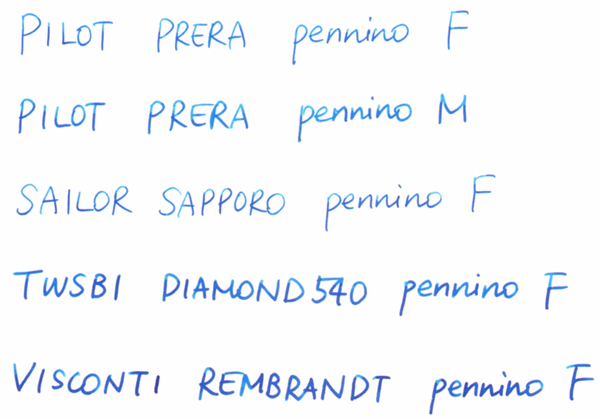 PILOT PRERA pennino F
PILOT PRERA pennino M
SAILOR SAPPORO pennino F
TWSBI DIAMOND 540 pennino F
VISCONTI REMBRANDT pennino F